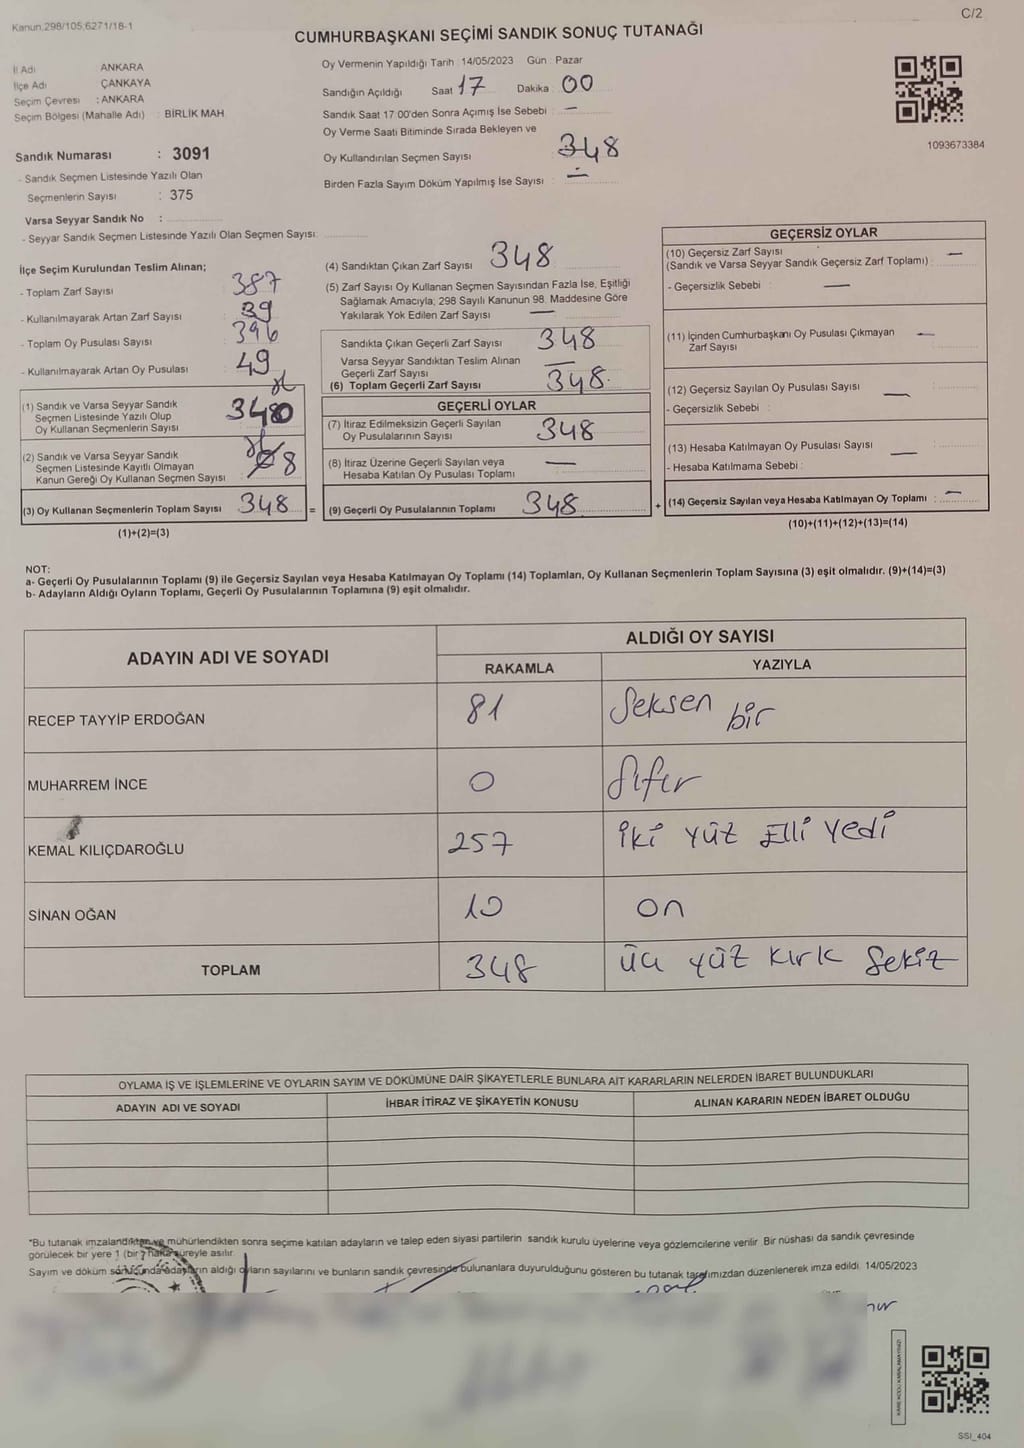 Kanun:298/105;6271/18-1
C/2
CUMHURBAŞKANI SEÇİMİ SANDIK SONUÇ TUTANAĞI
İl Adı ANKARA
İlçe Adı ÇANKAYA
Seçim Çevresi : ANKARA
Seçim Bölgesi (Mahalle Adı) : BİRLİK MAH
Sandık Numarası : 3091
- Sandık Seçmen Listesinde Yazılı Olan
Seçmenlerin Sayısı : 375
Varsa Seyyar Sandık No :
- Seyyar Sandık Seçmen Listesinde Yazılı Olan Seçmen Sayısı:
Oy Vermenin Yapıldığı Tarih : 14/05/2023 Gün : Pazar
Sandığın Açıldığı Saat 17 Dakika 00
Sandık Saat 17:00'den Sonra Açımış İse Sebebi : —
Oy Verme Saati Bitiminde Sırada Bekleyen ve
Oy Kullandırılan Seçmen Sayısı : 348
Birden Fazla Sayım Döküm Yapılmış İse Sayısı : —
1093673384
İlçe Seçim Kurulundan Teslim Alınan;
- Toplam Zarf Sayısı 387
- Kullanılmayarak Artan Zarf Sayısı 39
- Toplam Oy Pusulası Sayısı 396
- Kullanılmayarak Artan Oy Pusulası 49
(1) Sandık ve Varsa Seyyar Sandık
Seçmen Listesinde Yazılı Olup
Oy Kullanan Seçmenlerin Sayısı 340
(2) Sandık ve Varsa Seyyar Sandık
Seçmen Listesinde Kayıtlı Olmayan
Kanun Gereği Oy Kullanan Seçmen Sayısı 8
(3) Oy Kullanan Seçmenlerin Toplam Sayısı 348 =
(1)+(2)=(3)
(4) Sandıktan Çıkan Zarf Sayısı 348
(5) Zarf Sayısı Oy Kullanan Seçmen Sayısından Fazla İse, Eşitliği
Sağlamak Amacıyla; 298 Sayılı Kanunun 98. Maddesine Göre
Yakılarak Yok Edilen Zarf Sayısı —
Sandıkta Çıkan Geçerli Zarf Sayısı 348
Varsa Seyyar Sandıktan Teslim Alınan
Geçerli Zarf Sayısı —
(6) Toplam Geçerli Zarf Sayısı 348
GEÇERLİ OYLAR
(7) İtiraz Edilmeksizin Geçerli Sayılan
Oy Pusulalarının Sayısı 348
(8) İtiraz Üzerine Geçerli Sayılan veya
Hesaba Katılan Oy Pusulası Toplamı —
(9) Geçerli Oy Pusulalarının Toplamı 348 +
GEÇERSİZ OYLAR
(10) Geçersiz Zarf Sayısı
(Sandık ve Varsa Seyyar Sandık Geçersiz Zarf Toplamı) : —
- Geçersizlik Sebebi : —
(11) İçinden Cumhurbaşkanı Oy Pusulası Çıkmayan —
Zarf Sayısı
(12) Geçersiz Sayılan Oy Pusulası Sayısı —
- Geçersizlik Sebebi :
(13) Hesaba Katılmayan Oy Pusulası Sayısı —
- Hesaba Katılmama Sebebi :
(14) Geçersiz Sayılan veya Hesaba Katılmayan Oy Toplamı : —
(10)+(11)+(12)+(13)=(14)
NOT:
a- Geçerli Oy Pusulalarının Toplamı (9) ile Geçersiz Sayılan veya Hesaba Katılmayan Oy Toplamı (14) Toplamları, Oy Kullanan Seçmenlerin Toplam Sayısına (3) eşit olmalıdır. (9)+(14)=(3)
b- Adayların Aldığı Oyların Toplamı, Geçerli Oy Pusulalarının Toplamına (9) eşit olmalıdır.
ADAYIN ADI VE SOYADI ALDIĞI OY SAYISI
RAKAMLA YAZIYLA
RECEP TAYYİP ERDOĞAN 81 Seksen bir
MUHARREM İNCE 0 Sıfır
KEMAL KILIÇDAROĞLU 257 iki yüz Elli yedi
SİNAN OĞAN 10 on
TOPLAM 348 üç yüz kırk sekiz
OYLAMA İŞ VE İŞLEMLERİNE VE OYLARIN SAYIM VE DÖKÜMÜNE DAİR ŞİKAYETLERLE BUNLARA AİT KARARLARIN NELERDEN İBARET BULUNDUKLARI
ADAYIN ADI VE SOYADI İHBAR İTİRAZ VE ŞİKAYETİN KONUSU ALINAN KARARIN NEDEN İBARET OLDUĞU
*Bu tutanak imzalandıktan ve mühürlendikten sonra seçime katılan adayların ve talep eden siyasi partilerin sandık kurulu üyelerine veya gözlemcilerine verilir. Bir nüshası da sandık çevresinde
görülecek bir yere 1 (bir) hafta süreyle asılır.
Sayım ve döküm sonucunda adayların aldığı oyların sayılarını ve bunların sandık çevresinde bulunanlara duyurulduğunu gösteren bu tutanak tarafımızdan düzenlenerek imza edildi. 14/05/2023
KARE KODU KARALAMAYINIZ!
SSI_404